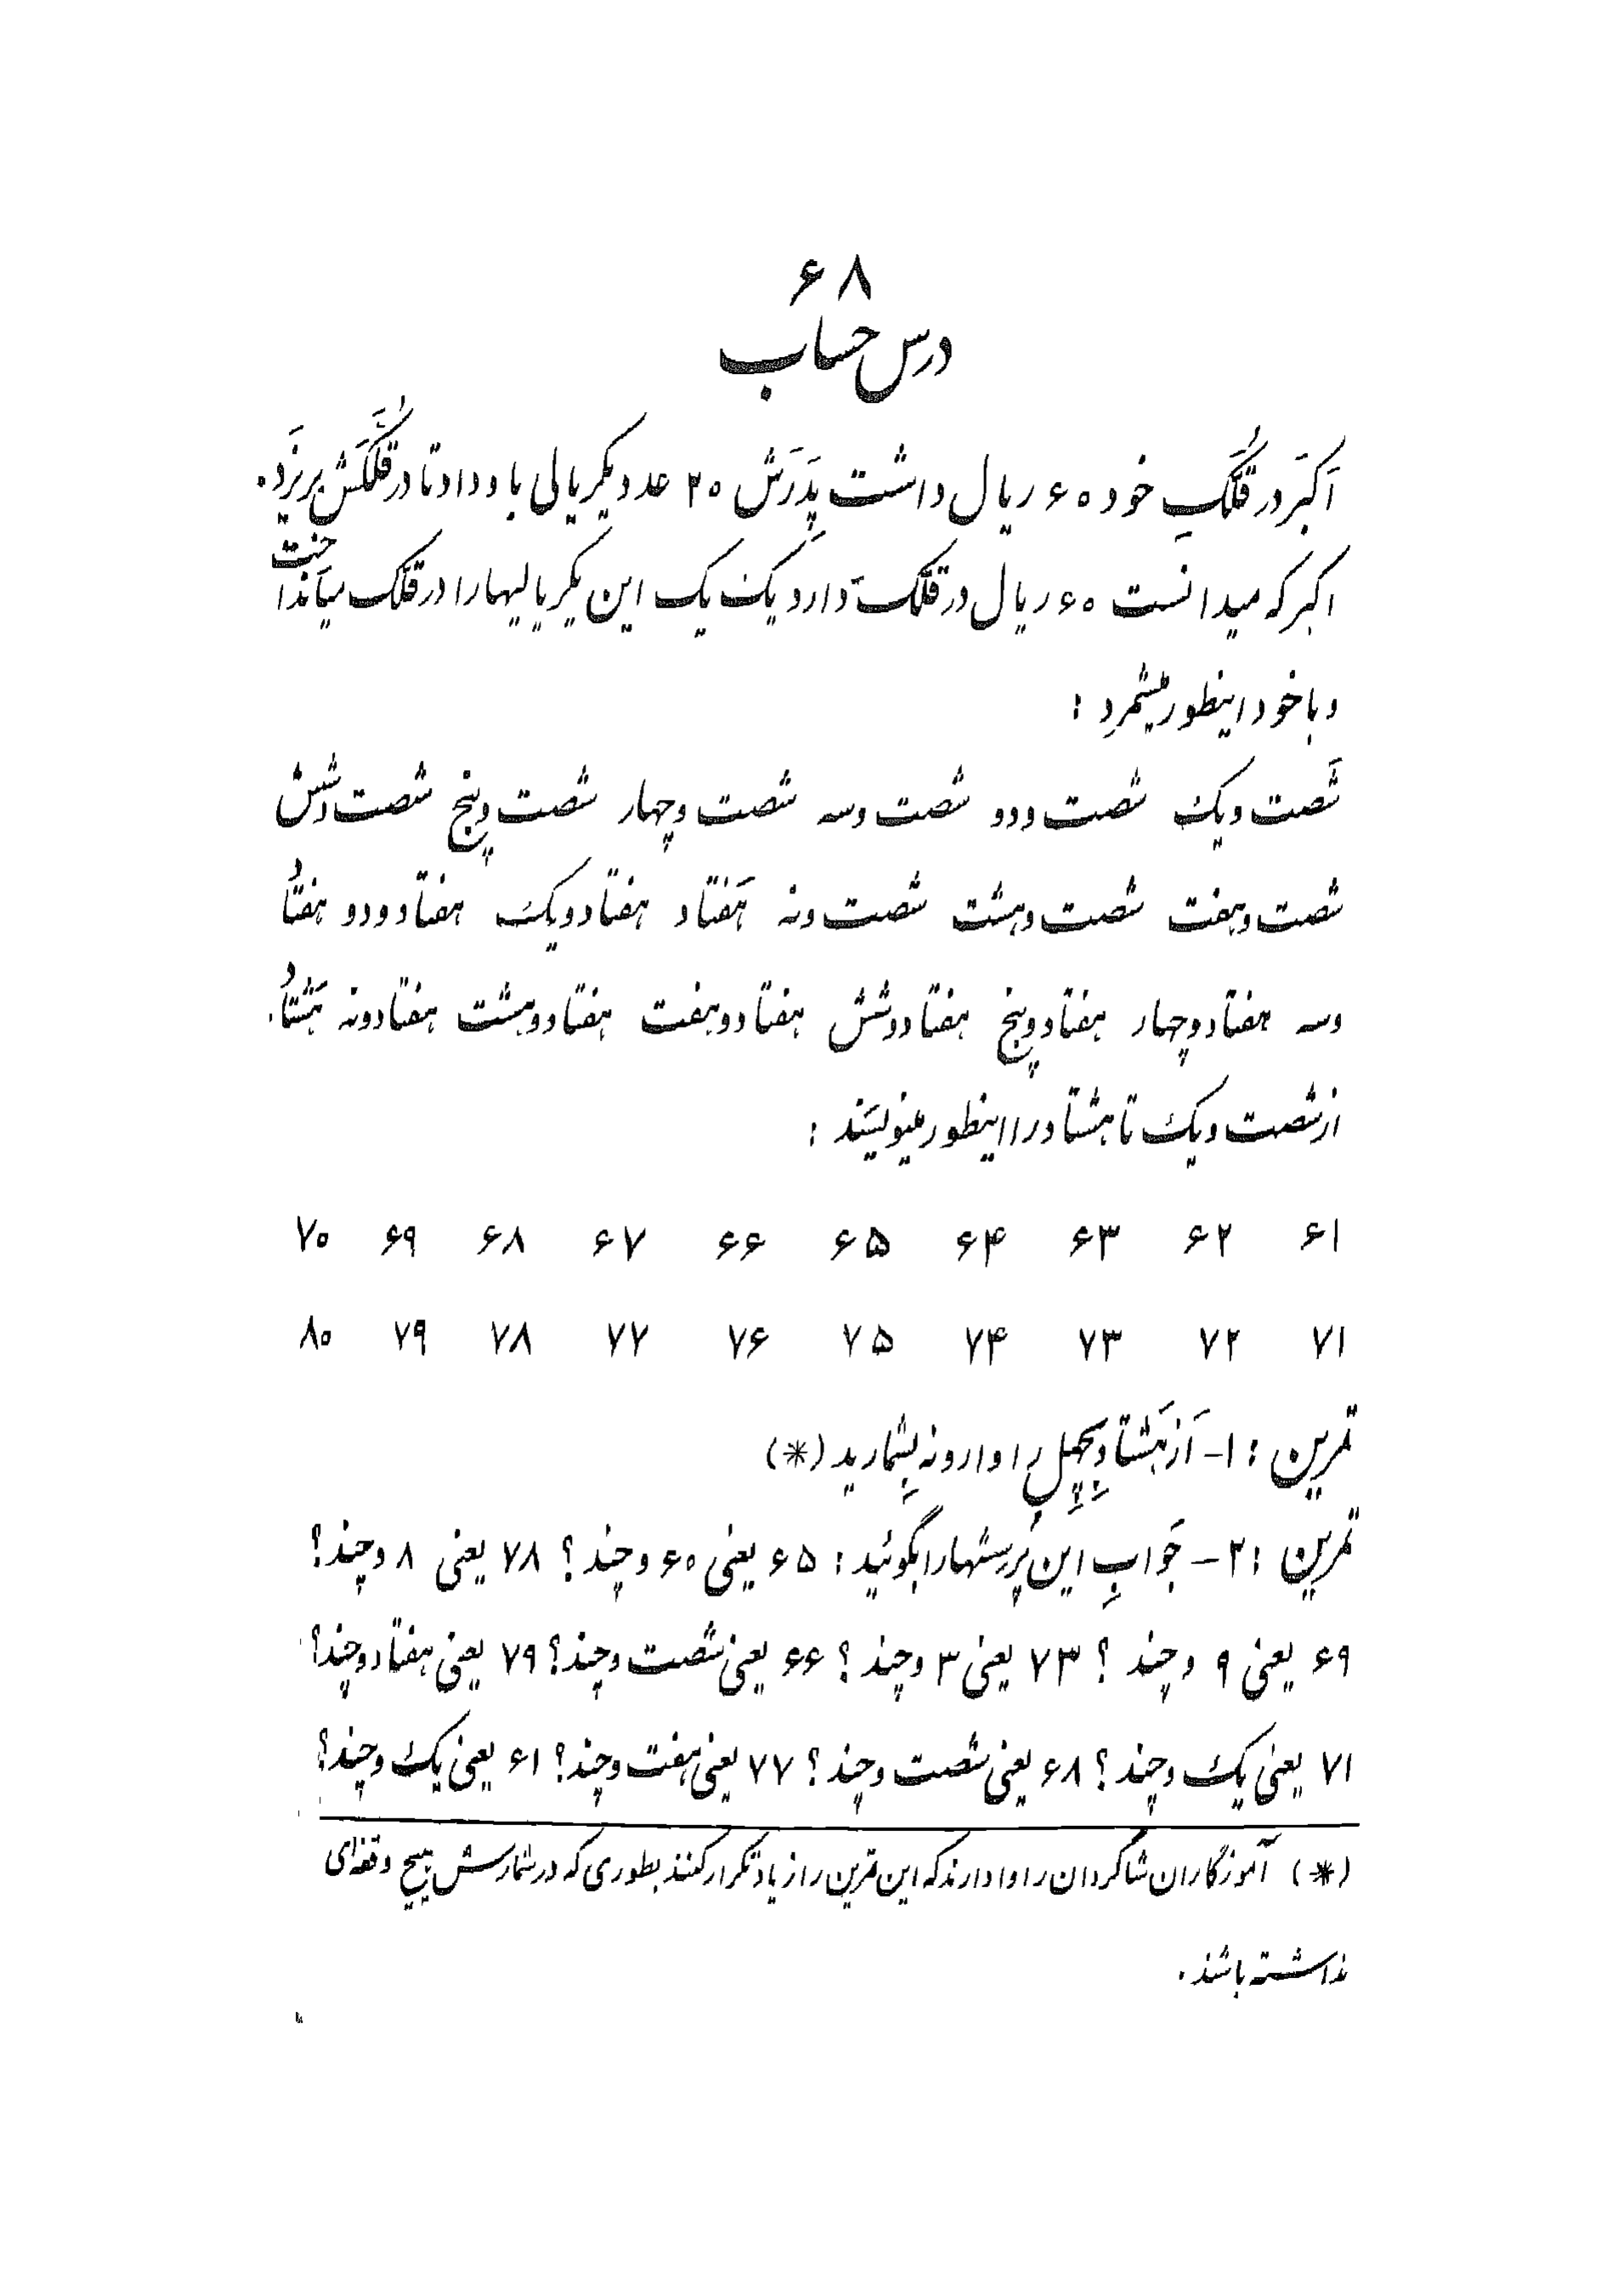 ۶۸
درس حساب
اَکبَر در قُلَّکِ خود ۶۰ ریال داشت پِدَرَش ۲۰ عدد یکریالی باو داد تا در قُلَّکَش بریزَد.
اکبر که میدانست ۶۰ ریال در قلّک دارد یک یک این یکریالیها را در قلّک میاَنداخت
و با خود اینطور میشمرد :
شَصت و یک شصت و دو شصت و سه شصت و چهار شصت و پنج شصت و شش
شصت و هفت شصت و هشت شصت و نه هَفتاد هفتاد و یک هفتاد و دو هفتاد
و سه هفتاد و چهار هفتاد و پنج هفتاد و شش هفتاد و هفت هفتاد و هشت هفتاد و نه هَشتاد.
از شصت و یک تا هشتاد را اینطور مینویسَند :
۶۱ ۶۲ ۶۳ ۶۴ ۶۵ ۶۶ ۶۷ ۶۸ ۶۹ ۷۰
۷۱ ۷۲ ۷۳ ۷۴ ۷۵ ۷۶ ۷۷ ۷۸ ۷۹ ۸۰
تمرین : ۱- اَز هَشتاد بِچِهِل را وارونه بِشمارید (*)
تمرین : ۲- جَوابِ این پُرسشها را بگوئید : ۶۵ یعنی ۶۰ و چند ؟ ۷۸ یعنی ۸ و چند؟
۶۹ یعنی ۹ و چند ؟ ۷۳ یعنی ۳ و چند ؟ ۶۶ یعنی شصت و چند؟ ۷۹ یعنی هفتاد و چند؟
۷۱ یعنی یک و چند ؟ ۶۸ یعنی شصت و چند ؟ ۷۷ یعنی هفت و چند؟ ۶۱ یعنی یک و چند؟
(*) آموزگاران شاگردان را وادارند که این تمرین را زیاد تکرار کنند بطوری که در شمارسش هیچ وقفه‌ای
نداشته باشند.